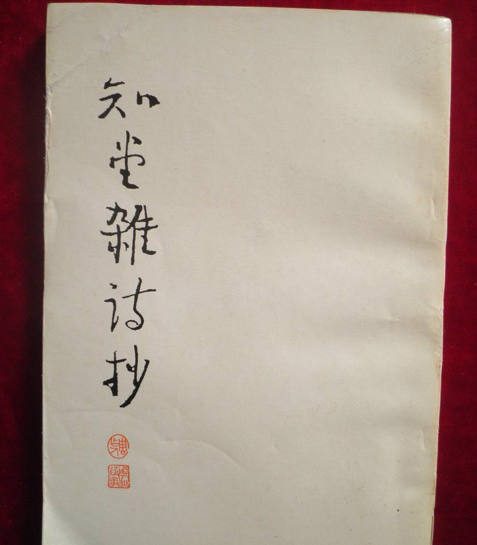 知堂雜诗抄